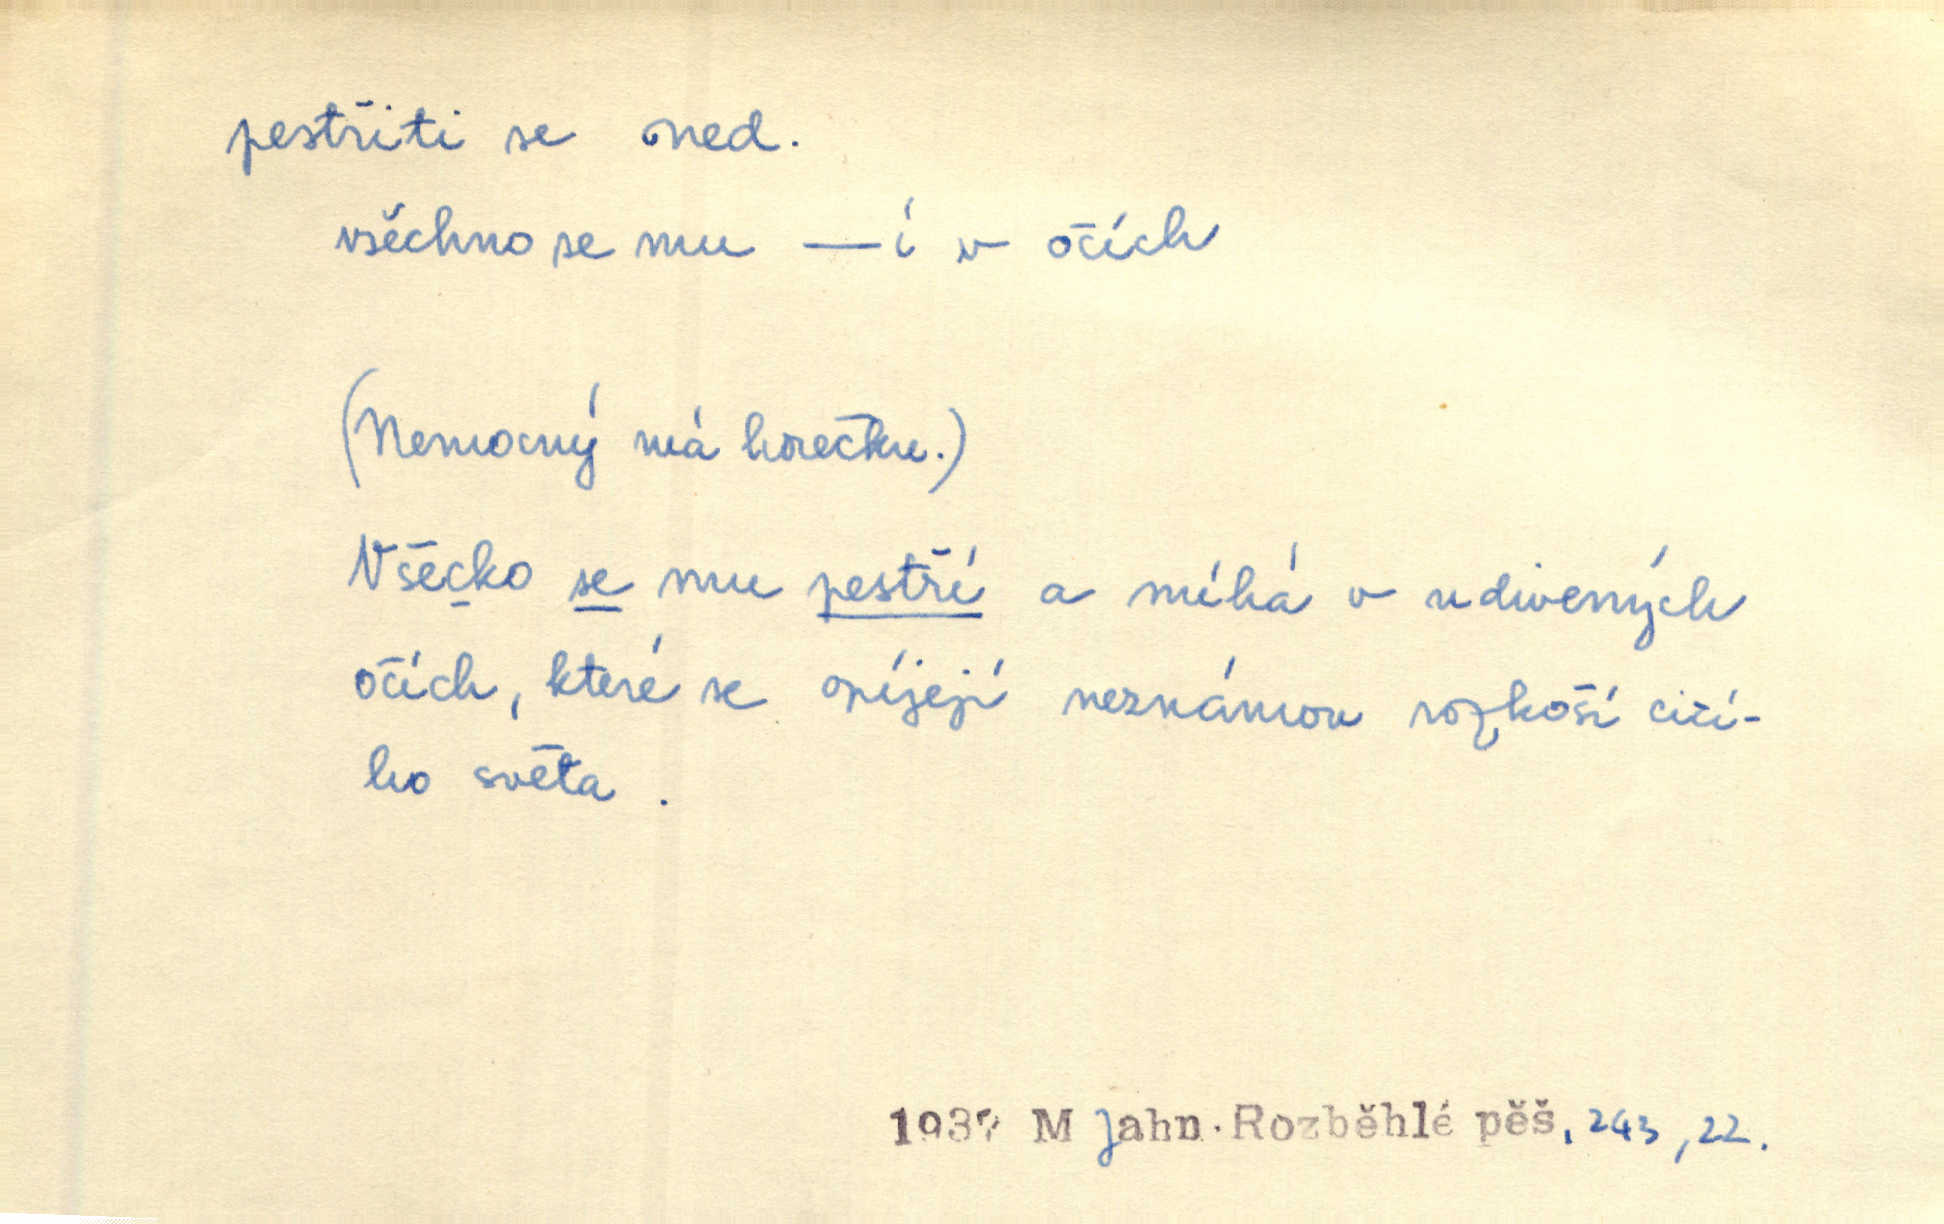 pestřiti se ned.
všechno se mu —í v očích
(Nemocný má horečku.)
Všecko se mu pestří a míhá v udivených
očích, které se opíjejí neznámou rozkoší cizí-
ho světa.
1937 M Jahn. Rozběhlé pěš, 243, 22.